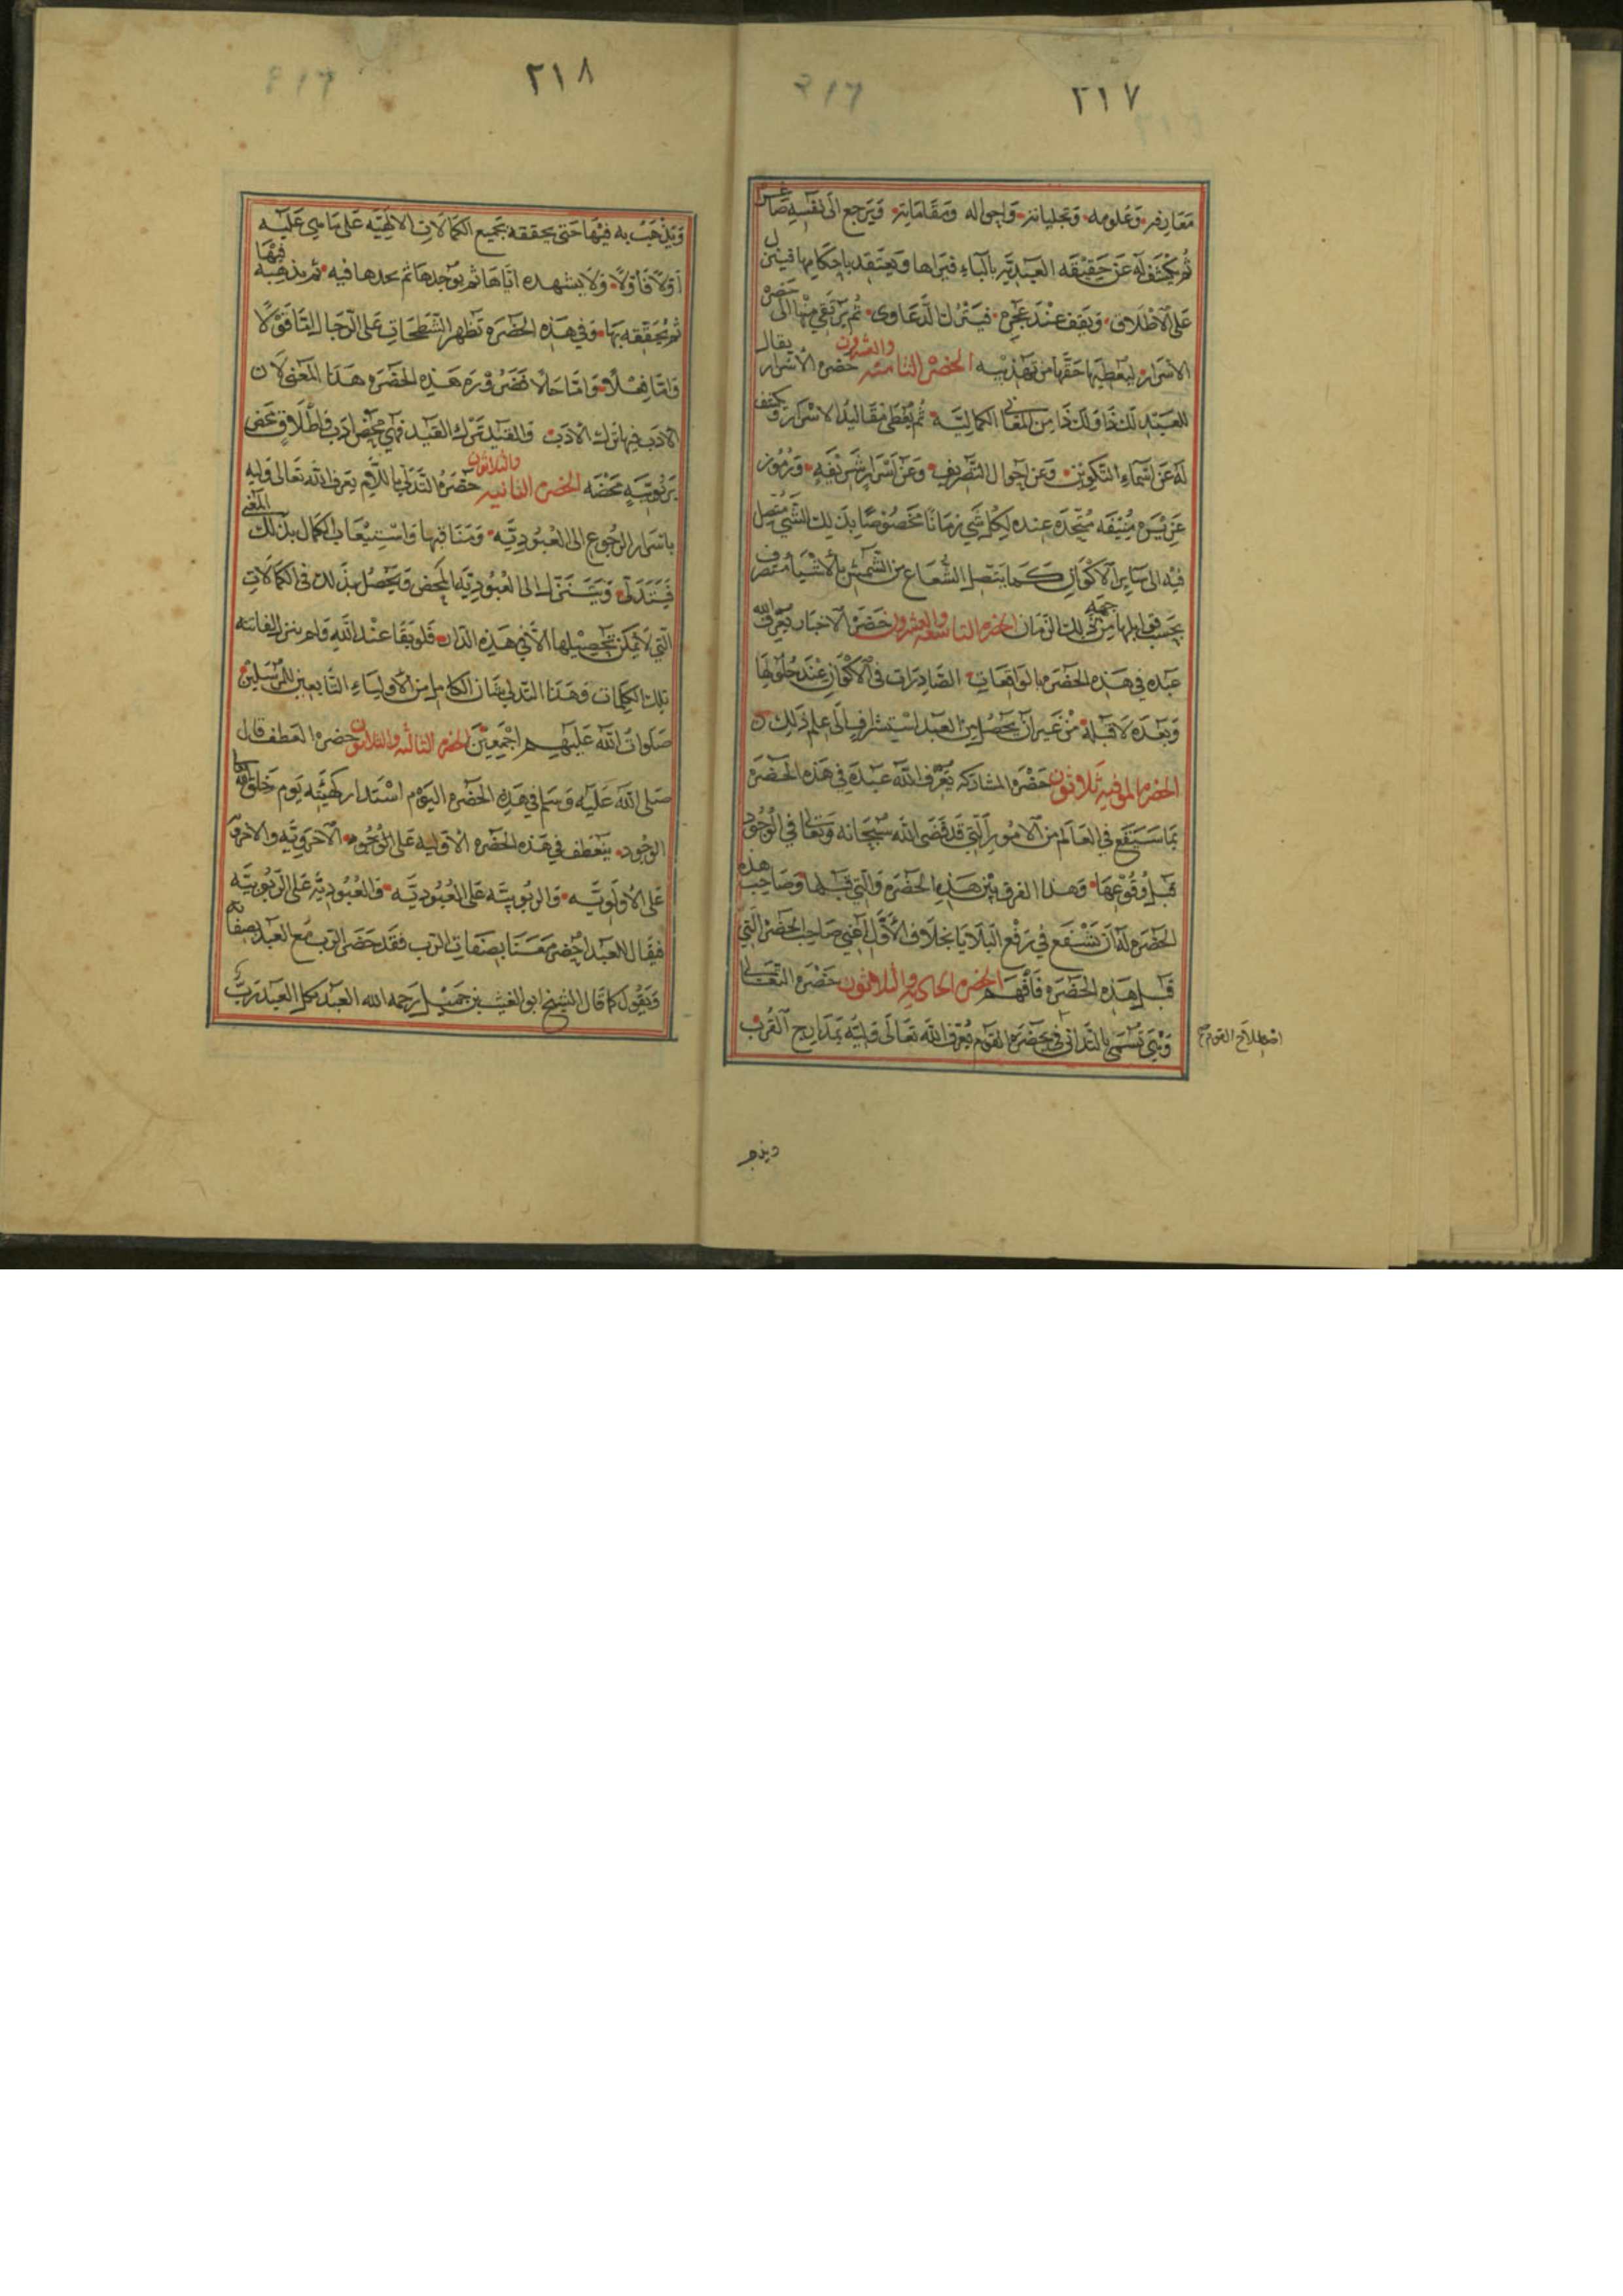 ٢١٧
معارفه وعلومه وتجلياته واحواله ومقاماته ويرجع الى نفسه صاغرا
ثم يكشف له عن حقيقة العبدية بالباء فيراها ويعتقد باحكامها فينزل
على الاطلاق ويقف عند عجزه فيترك الدعاوى ثم يرتقي منها الى حضرة
الاسرار ليعطيها حقها من تهذيبه الحضرة الثامنة والعشرون حضرة الاسرار يقال
للعبد لك ذا ولك ذا من المعاني الكمالية ثم يعطى مقاليد الاسرار ويكشف
له عن اسماء التكوين وعن احوال التصريف وعن اسرار شريفه ورموز
عزيزه منيفه متحده عنده لكل شي زمانا مخصوصا بذلك الشي متصل
فيه الى ساير الاكوان كما يتصل الشعاع من الشمس بالاشيا متصرف
بحسب قوابلها من جهة ذلك الزمان الحضرة التاسعة والعشرون حضرة الاخبار يعرف الله
عبده في هذه الحضرة بالواقعات الصادرات في الاكوان عند حلولها
وبعده لا قبله من غير ان يحصل من العبد استشراف الى علم ذلك
الحضرة الموفية ثلاثون حضرة المشاركة يعرف الله عبده في هذه الحضرة
بما سيقع في العالم من الامور التي قد قضى الله سبحانه وتعالى في الوجود
قبل وقوعها وهذا الفرق بين هذه الحضرة والتي قبلها وصاحب هذه
الحضرة له ان تشفع في رفع البلايا بخلاف الاول اعني صاحب الحضرة التي
قبل هذه الحضرة فافهم الحضرة الحادية والثلاثون حضرة التعالى
وهي تسمى بالتداني في حضرة القوم يعرف الله تعالى وليه بمدارج القرب
اصطلاح القوم
٢١٨
ويذهب به فيها حتى يحققه بجميع الكمالات الالهية على ما هي عليه
اولا فاولا ولا يشهده اياها ثم يوجدها ثم يجدها فيه ثم يذهبه فيها
ثم يحققه بها وفي هذه الحضرة تظهر الشطحات على الرجال اما قولا
واما فعلا واما حالا هذه الحضرة هذا المعنى لان
الادب فيها ترك الادب والقيد ترك القيد فهي محض ادب واطلاق محض
ربوبية محضه الحضرة الثانيه والثلاثون حضرة التدلي باللام يعرف الله تعالى وليه
باسرار الرجوع الى العبودية ومناقبها واستيعاب الكمال بذلك المعنى
فيتدلى ويتنزل الى العبودية المحض ويحصل بذلك في الكمالات
التي لا يمكن تحصيلها الا في هذه الدار فلو بقا عند الله ولم ينزل لفاتته
تلك الكمالات وهذا التدلي شان الكامل من الاولياء التابعين للمرسلين
صلوات الله عليهم اجمعين الحضرة الثالثة والثلاثون حضرة العطف قال
صلى الله عليه وسلم في هذه الحضرة اليوم استدار كهيئته يوم خلق الله
الوجود ينعطف في هذه الحضرة الاولية على الوجود الآخروية والاخروية
على الاولوية والربوبية على العبودية والعبودية على الربوبية
فيقال للعبد احضر معنا بصفات الرب فقد حضر الرب مع العبد بصفاته
ويقول كما قال الشيخ ابو الغيث بن جميل رحمه الله العبد رب